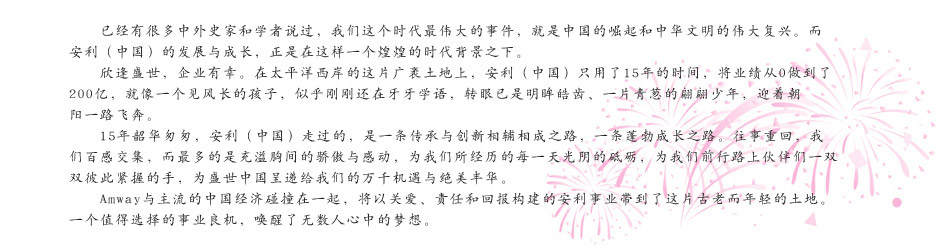 已经有很多中外史家和学者说过，我们这个时代最伟大的事件，就是中国的崛起和中华文明的伟大复兴。而
安利（中国）的发展与成长，正是在这样一个煌煌的时代背景之下。
欣逢盛世，企业有幸。在太平洋西岸的这片广袤土地上，安利（中国）只用了15年的时间，将业绩从0做到了
200亿，就像一个见风长的孩子，似乎刚刚还在牙牙学语，转眼已是明眸皓齿、一片青葱的翩翩少年，迎着朝
阳一路飞奔。
15年韶华匆匆，安利（中国）走过的，是一条传承与创新相辅相成之路，一条蓬勃成长之路。往事重回，我
们百感交集，而最多的是充溢胸间的骄傲与感动，为我们所经历的每一天光阴的砥砺，为我们前行路上伙伴们一双
双彼此紧握的手，为盛世中国呈递给我们的万千机遇与绝美丰华。
Amway与主流的中国经济碰撞在一起，将以关爱、责任和回报构建的安利事业带到了这片古老而年轻的土地。
一个值得选择的事业良机，唤醒了无数人心中的梦想。